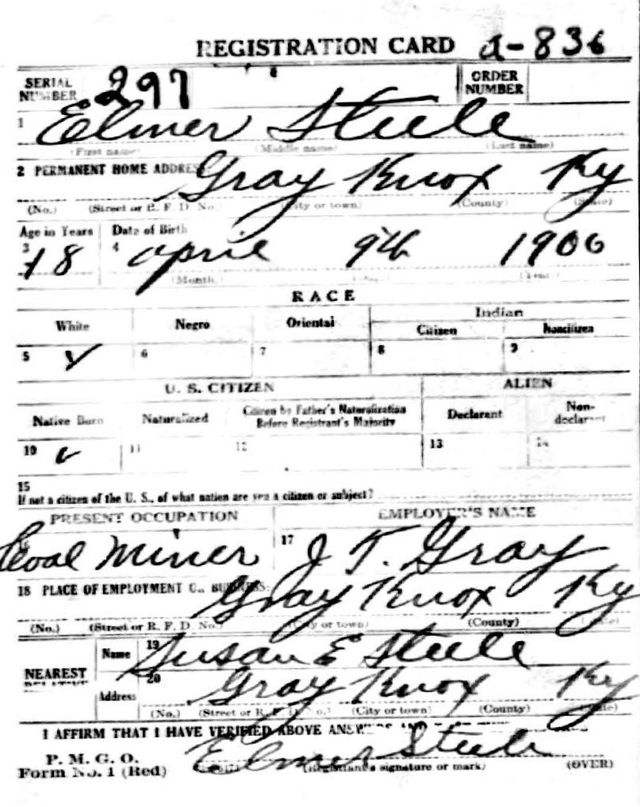 REGISTRATION CARD a-836
SERIAL NUMBER 297 ORDER NUMBER
1 Elmer Steele
(First name) (Middle name) (Last name)
2 PERMANENT HOME ADDRESS Gray Knox Ky
(No.) (Street or R. F. D. No.) (City or town) (County) (State)
Age in Years Date of Birth
3 18 4 April 9th 1900
(Month.) (Day.) (Year.)
RACE
White Negro Oriental Indian
Citizen Noncitizen
5 ✓ 6 7 8 9
U. S. CITIZEN ALIEN
Native Born Naturalized Citizen by Father's Naturalization Before Registrant's Majority Declarant Non-declarant
10 ✓ 11 12 13 14
15
If not a citizen of the U. S., of what nation are you a citizen or subject?
PRESENT OCCUPATION EMPLOYER'S NAME
Coal Miner 17 J. T. Gray
18 PLACE OF EMPLOYMENT OR BUSINESS:
Gray Knox Ky
(No.) (Street or R. F. D. No.) (City or town) (County)
NEAREST RELATIVE Name 19 Susan E Steele
Address 20 Gray Knox Ky
(No.) (Street or R. F. D. No.) (City or town) (County) (State)
I AFFIRM THAT I HAVE VERIFIED ABOVE ANSWERS AND
P. M. G. O.
Form No. 1 (Red) Elmer Steele
(Registrant's signature or mark) (OVER)